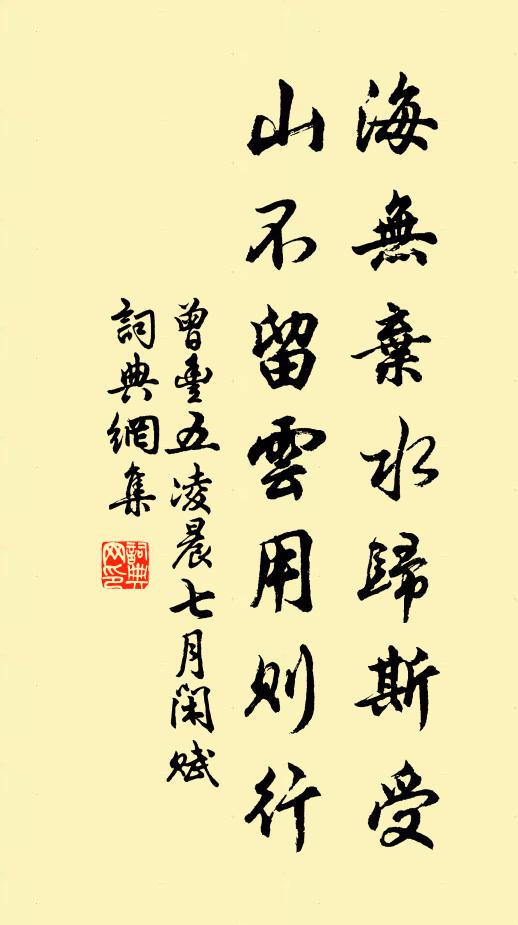 海無棄水歸斯受
山不留雲用則行
曾豐五凌晨七月閑賦
詞典網集
詞典
网印